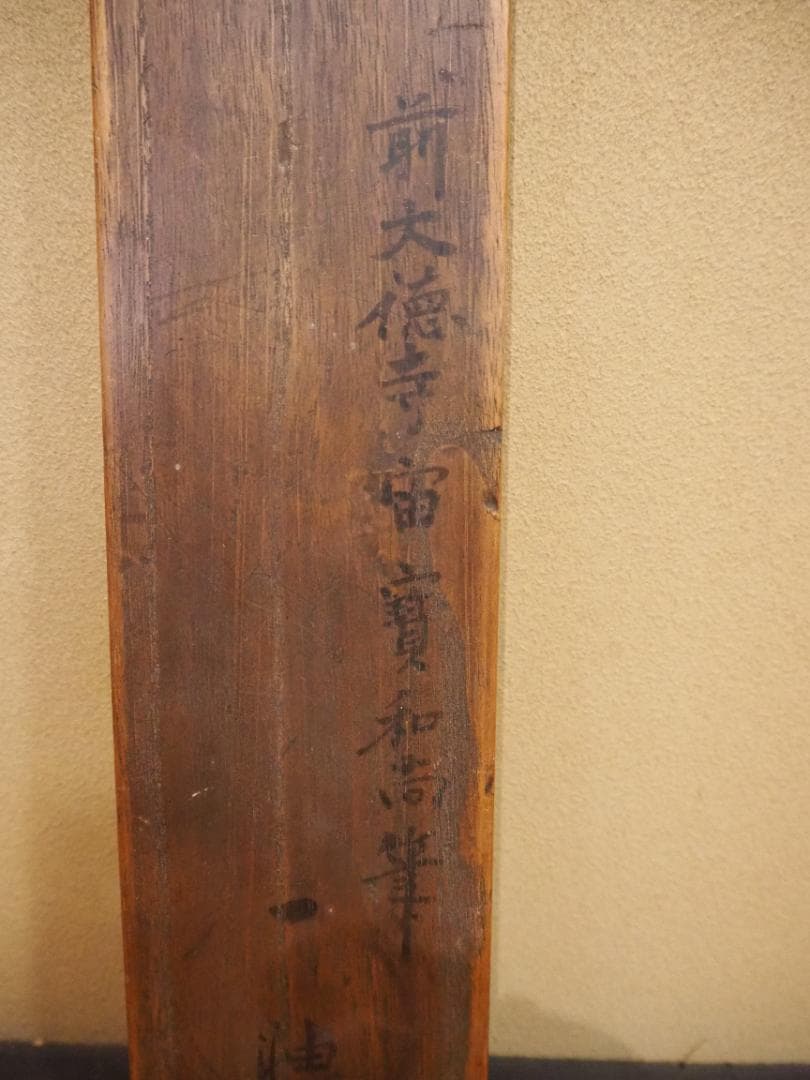 前大徳寺宙寶和尚筆
一軸